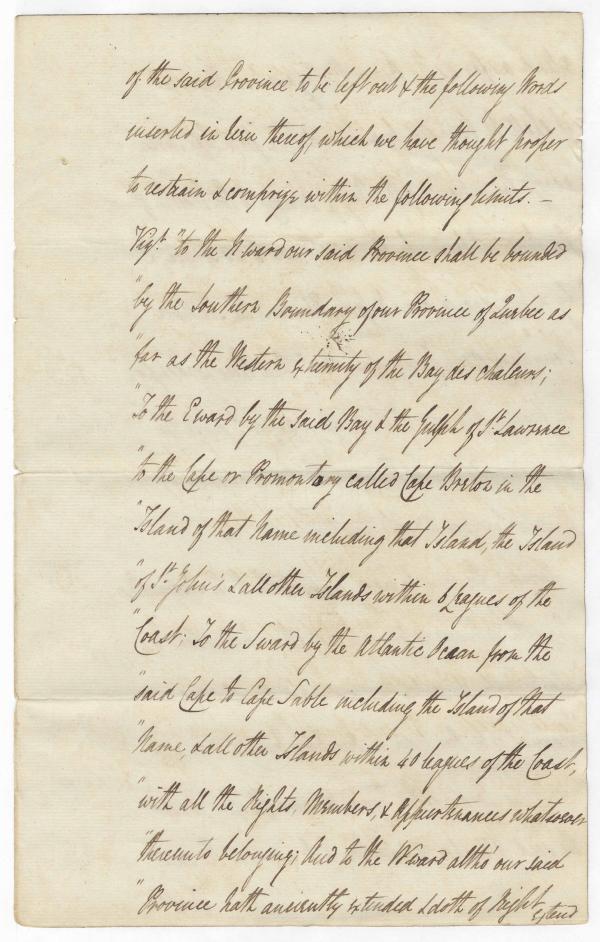 of the said Province to be left out & the following Words
inserted in lieu thereof, which we have thought proper
to restrain & comprize within the following limits. –
Vizt. "to the Nward our said Province shall be bounded
"by the Southern Boundary of our Province of Quebec as
"far as the Western extremity of the Bay des Chaleurs;
"To the Eward by the said Bay & the Gulph of St. Lawrence
"to the Cape or Promontory called Cape Breton in the
"Island of that Name including that Island, the Island
"of St. John's & all other Islands within 6 Leagues of the
"Coast; To the Sward by the Atlantic Ocean from the
"said Cape to Cape Sable including the Island of that
"Name, & all other Islands within 40 leagues of the Coast,
"with all the Rights, Members, & Appurtenances whatsoever
"thereunto belonging; And to the Wward altho' our said
"Province hath anciently extended & doth of Right
extend